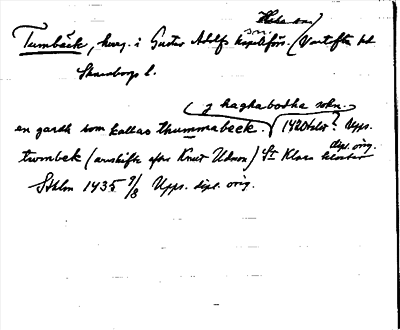 Habo sn)
Tumbäck, herg. i Gustav Adolfs kapellförs. (Vartofta hd
sn
Skaraborgs l.
(j haghabodha sokn.)
en gardh som kallas thummabeek. 1420talet? Upps.
dipl. orig.
twmbek (avskrift efter Knut Udson) St Klara kloster
Sthlm 1435 9/8 Upps. dipl. orig.